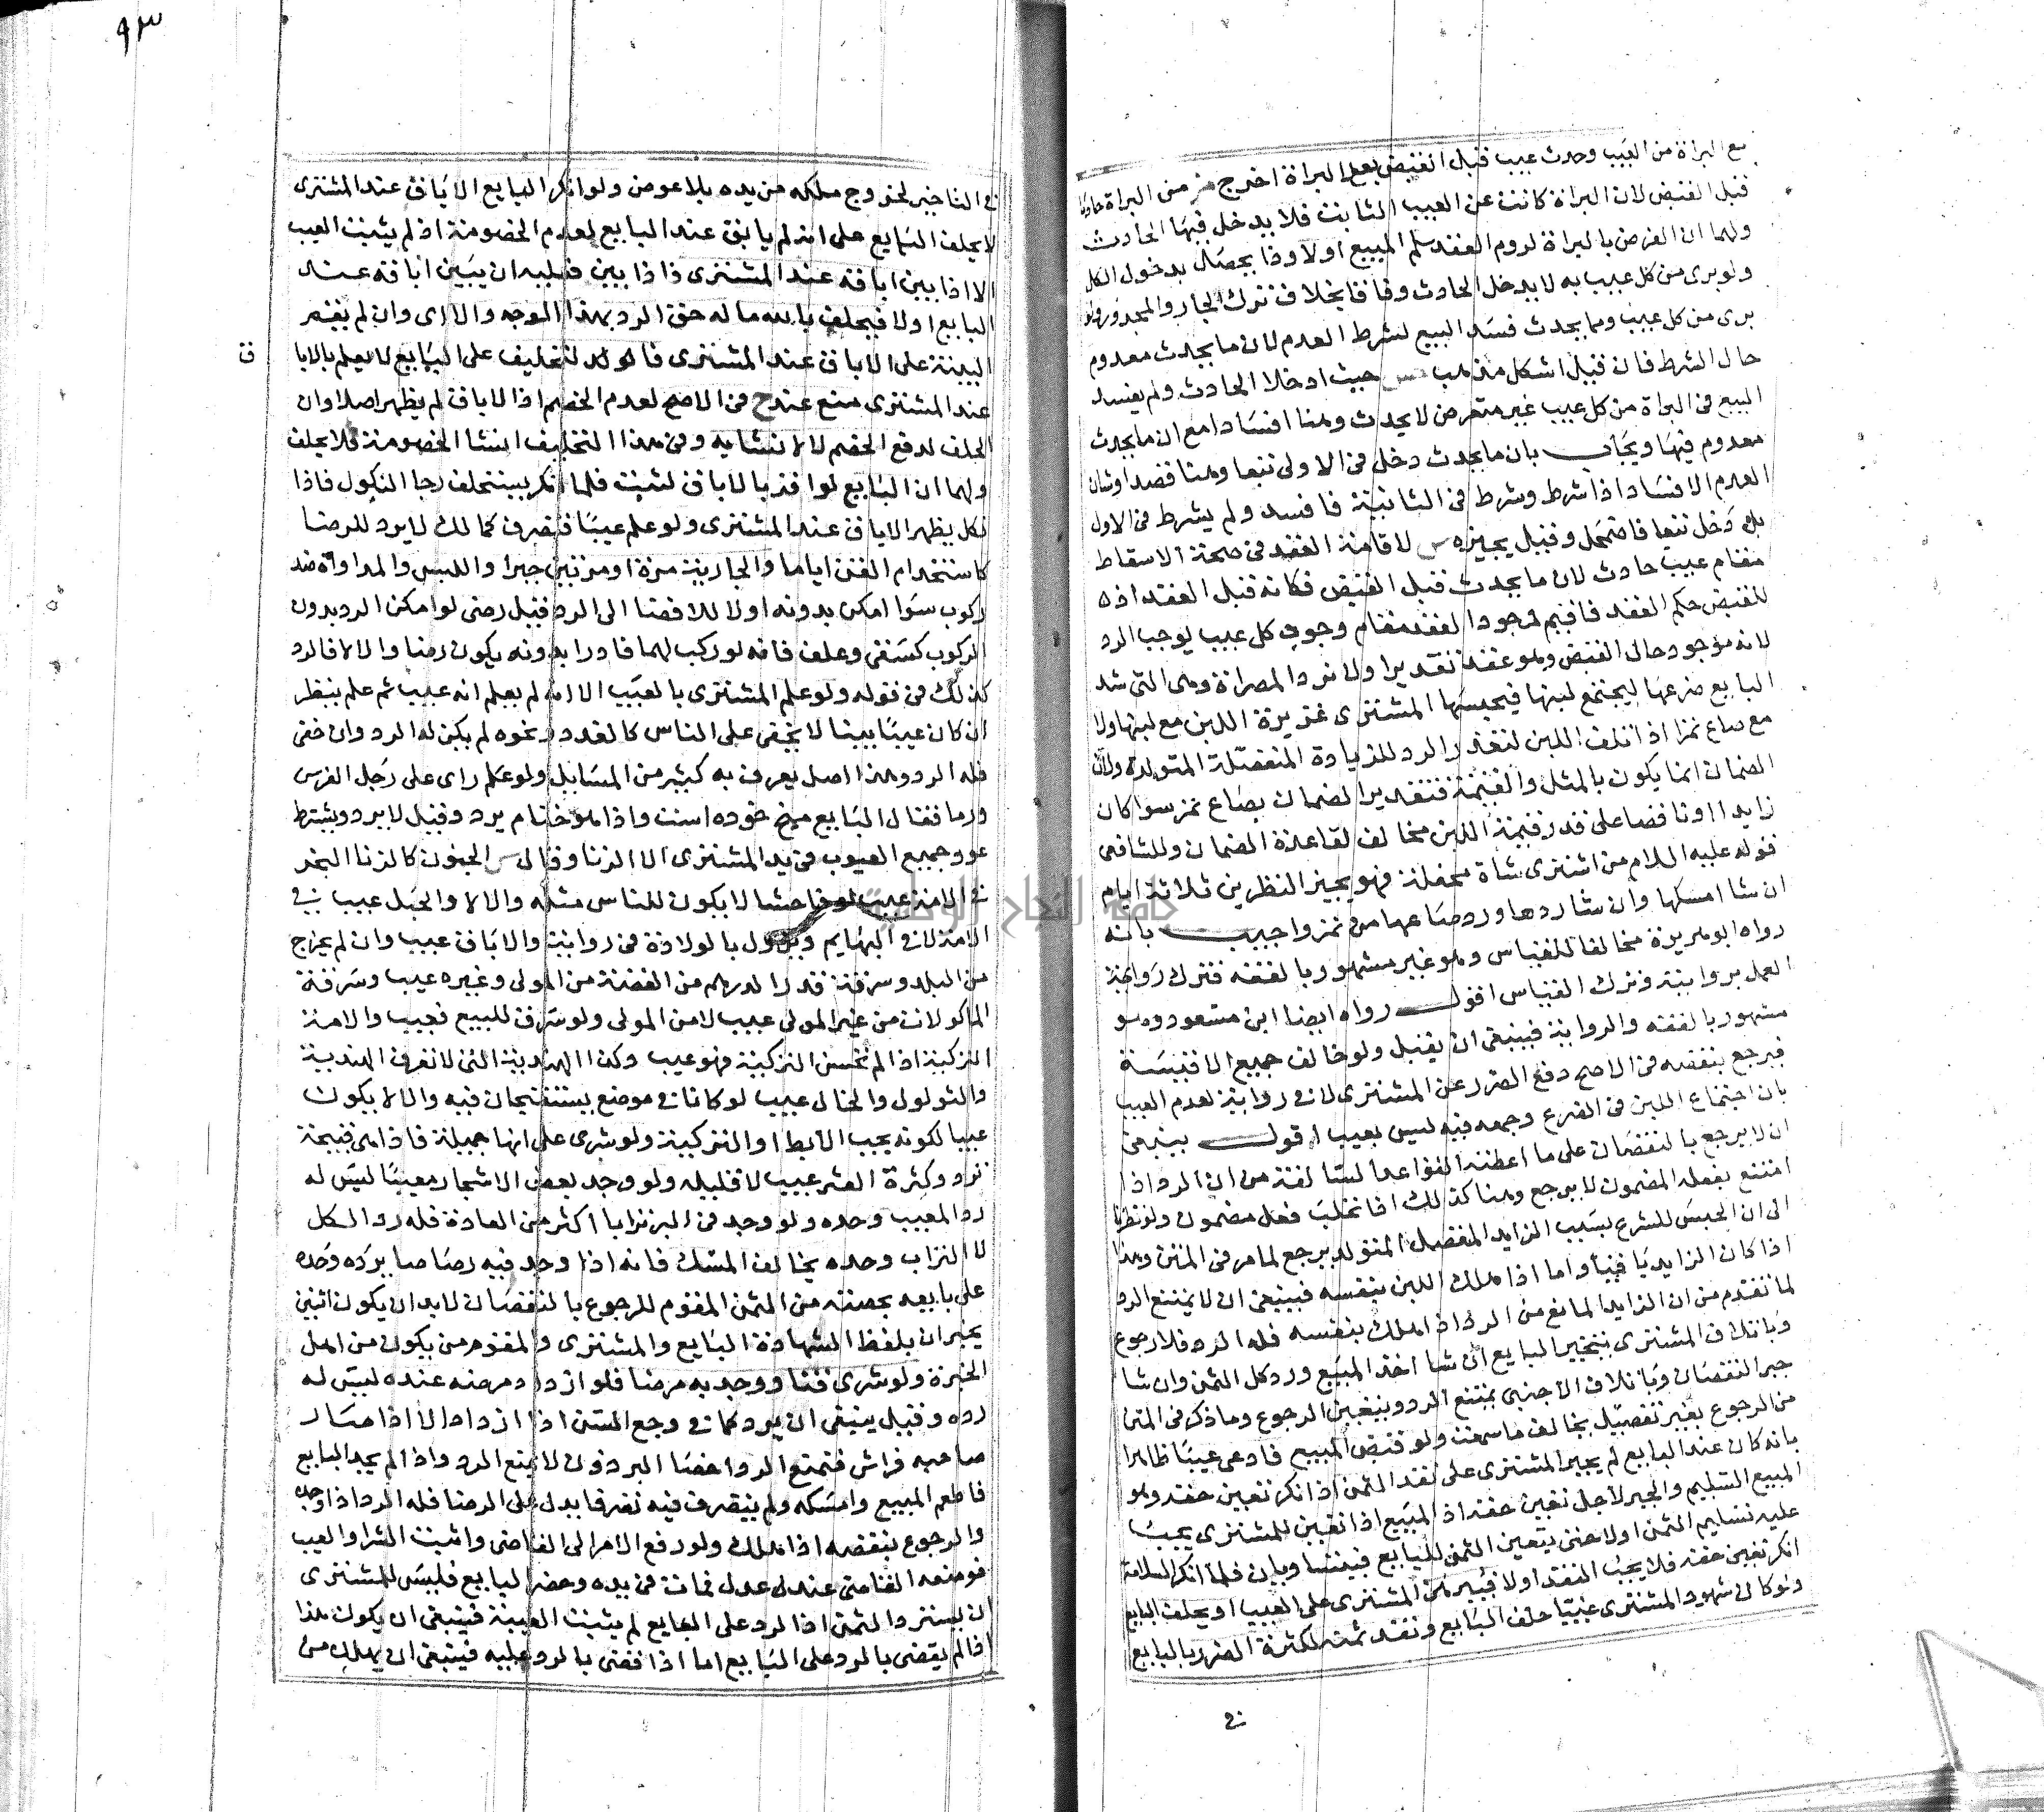 مع البراة من العيب وحدث عيب قبل القبض بعد البراة اخرج من البراة حادثا
قبل القبض لان البراة كانت عن العيب الثابت فلا يدخل فيها الحادث
ولهما ان الغرض بالبراة لزوم العقد سلم المبيع اولا وذا يحصل بدخول الكل
ولو برى من كل عيب به لا يدخل الحادث وفاقا بخلاف ترك الجار والمجرور ولو
برى من كل عيب ومما يحدث فسد البيع لشرط العدم لان ما يحدث معدوم
حال الشرط فان قيل اشكل مذهب س حيث ادخلا الحادث ولم يفسد
البيع في البراة من كل عيب غير متعرض لا يحدث وهنا افسادا مع ان ما يحدث
معدوم فيها ويجاب بان ما يحدث دخل في الاولى تبعا وهنا قصدا وشان
العدم الافساد اذا شرط وشرط في الثانية فافسد ولم يشرط في الاول
بل دخل تبعا فاضمحل وقيل يجيزه س لاقامة العقد في صحة الاسقاط
مقام عيب حادث لان ما يحدث قبل القبض فكانه قبل العقد اذ
للقبض حكم العقد فاقيم وجود العقد مقام وجود كل عيب يوجب الرد
لانه موجود حال القبض وهو عقد تقديرا ولا نرد المصراة وهى التى شد
البايع ضرعها ليجتمع لبنها فيحسبها المشترى غزيرة اللبن مع لبنها ولا
مع صاع تمر اذا تلف اللبن لتعذر الرد للزيادة المنفصلة المتولدة ولان
الضمان انما يكون بالمثل والقيمة فتقدير الضمان بصاع تمر سوا كان
زايدا او ناقصا على قدر قيمة اللبن مخالف لقاعدة الضمان وللشافعى
قوله عليه السلام من اشترى شاة محفلة فهو بخير النظرين ثلاثة ايام
ان شا امسكها وان شا ردها ورد صاعها من تمر واجيب بانه
رواه ابو هريرة مخالفا للقياس وهو غير مشهور بالفقه فترك رواية
العمل بروايته وترك القياس اقول رواه ايضا ابن مسعود وهو
مشهور بالفقه والرواية فينبغى ان يقبل ولو خالف جميع الاقيسة
فيرجع بنقصه في الاصح دفع الضرر عن المشترى لا في رواية لعدم العيب
بان اجتماع اللبن في الضرع وجمعه فيه ليس بعيب اقول ينبغى
ان لا يرجع بالنقصان على ما اعطته القواعد السالفة من ان الرد اذا
امتنع بفعله المضمون لا يرجع وهنا كذلك اذا تحلب فعل مضمون ولو نظرنا
الى ان الحبس للشرع بسبب الزايد المنفصل المتولد يرجع لما مر في المتن وهذا
اذا كان الزايد باقيا واما اذا هلك اللبن بنفسه فينبغى ان لا يمتنع الرد
لما تقدم من ان الزايد المانع من الرد اذا هلك بنفسه فله الرد فلا رجوع
وباتلاف المشترى يتخير البايع ان شا اخذ المبيع ورد كل الثمن وان شا
جبر النقصان وباتلاف الاجنبى يمتنع الرد ويتعين الرجوع وما ذكر في المتن
من الرجوع بغير تفصيل يخالف ما سمعت ولو قبض المبيع فادعى عيبا ظاهرا
بانه كان عند البايع لم يجبر المشترى على نقد الثمن اذا انكر تعين حقه وهو
المبيع السليم والجبر لاجل تعين حقه اذ المبيع اذا تعين للمشترى يجب
عليه تسليم الثمن اولا حتى يتعين الثمن للبايع فيتساويان فلما انكر السلامة
انكر تعين حقه فلا يجب النقد اولا فيبرهن المشترى على العيب او يحلف البايع
ولو كان شهود المشترى غيبا حلف البايع ونقد ثمنه لكثرة الضرر بالبايع
في
٩٣
في التاخير لخروج ملكه من يده بلا عوض ولو انكر البايع الاباق عند المشترى
لا يحلف البايع على انه لم يابق عند البايع لعدم الخصومة اذ لم يثبت العيب
الا اذا بين اباقه عند المشترى فاذا بين فعليه ان يبين اباقه عند
البايع اولا فيحلف بالله ما له حق الرد بهذا الوجه والا اى وان لم يقم
البينة على الاباق عند المشترى فالولد لتحليف على البايع لا يعلم بالابا
ق
عند المشترى منع عند ح في الاصح لعدم الخصم اذ الاباق لم يظهر اصلا وان
الحلف لدفع الخصم لا لانشايه وفي هذا التحليف انشا الخصومة فلا يحلف
ولهما ان البايع لو اقر بالاباق لثبت فلما انكر يستحلف رجا النكول فاذا
نكل يظهر الاباق عند المشترى ولو علم عيبا فتصرف كمالك لا يرد للرضا
كاستخدام القن اياما والجارية مرة او مرتين جبرا واللبس والمداواة ضد
ركوب سوا امكن بدونه اولا للافضا الى الرد فقيل رضى لو امكن الرد بدون
الركوب كسقى وعلف فانه لو ركب لهما قادرا بدونه يكون رضا والا لا فالرد
كذلك في قوله ولو علم المشترى بالعيب الا انه لم يعلم انه عيب ثم علم ينظر
ان كان عيبا بينا لا يخفى على الناس كالغدد ونحوه لم يكن له الرد وان خفى
فله الرد وهذا اصل يعرف به كثير من المسايل ولو علم راى على رجل الفرس
ورما فقال البايع ميخ خوده است واذا هو خنام يرد وقيل لا يرد ويشترط
عود جميع العيوب في يد المشترى الا الزنا وقال س الجنون كالزنا البخر
في الامة عيب لو فاحشا لا يكون للناس مثله والا لا والحبل عيب في
الامة لا في البهايم ويزول بالولادة في رواية والاباق عيب وان لم يخرج
من البلد وسرقة قدر الدرهم من الفضة من المولى وغيره عيب وسرقة
الماكولات من غير المولى عيب لا من المولى ولو سرق للبيع فعيب والامة
التركية اذا لم تحسن التركية فهو عيب وكذا الهندية التى لا تعرف الهندية
والثولول والخال عيب لو كانا في موضع يستقبحان فيه والا لا يكون
عيبا لكونه يجب الابطا والتركية ولو شرى على انها جميلة فاذا هى قبيحة
ترد وكثرة العشر عيب لا قليله ولو وجد بعض الاشجار معيبا ليس له
رد المعيب وحده ولو وجد في البر ترابا اكثر من العادة فله رد الكل
لا التراب وحده يخالف المسك فانه اذا وجد فيه رصاصا يرده وحده
على بايعه بحصته من الثمن المقوم للرجوع بالنقصان لا بد ان يكون اثنين
يخبران بلفظ الشهادة البايع والمشترى والمقوم من يكون من اهل
الخبرة ولو شرى قنا ووجد به مرضا فلو ازداد مرضه عنده ليس له
رده وقيل ينبغى ان يرد كما في وجع السن اذا ازداد الا اذا صار
صاحبه فراش فتمتع الرد اخصا البرذون لا يمنع الرد واذا لم يجد البايع
فاطعم المبيع وامسكه ولم يتصرف فيه تصرفا يدل على الرضا فله الرد اذا وجده
والرجوع بنقصه اذا هلك ولو رفع الامر الى القاضى واثبت الشرا والعيب
فوضعه القاضى عند عدل فمات في يده وحضر البايع فليس للمشترى
ان يسترد الثمن اذ الرد على البايع لم يثبت الغيبة فينبغى ان يكون هذا
اذا لم يقض بالرد على البايع اما اذا قضى بالرد عليه فينبغى ان يهلك من
جامعة النجاح الوطنية